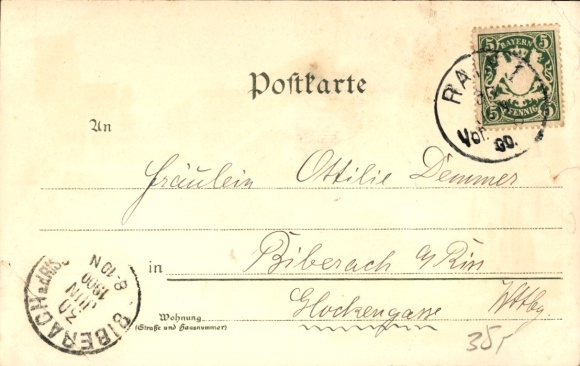 Postkarte
5 BAYERN 5
5 PFENNIG 5
Vor.
00.
An
Fräulein Ottilie Demmer
in Biberach a/Riss
Wohnung
(Straße und Hausnummer)
Glockengasse Wttbg.
BIBERACH a.d. RISS
30 JUN
1900
8-10 N
35,